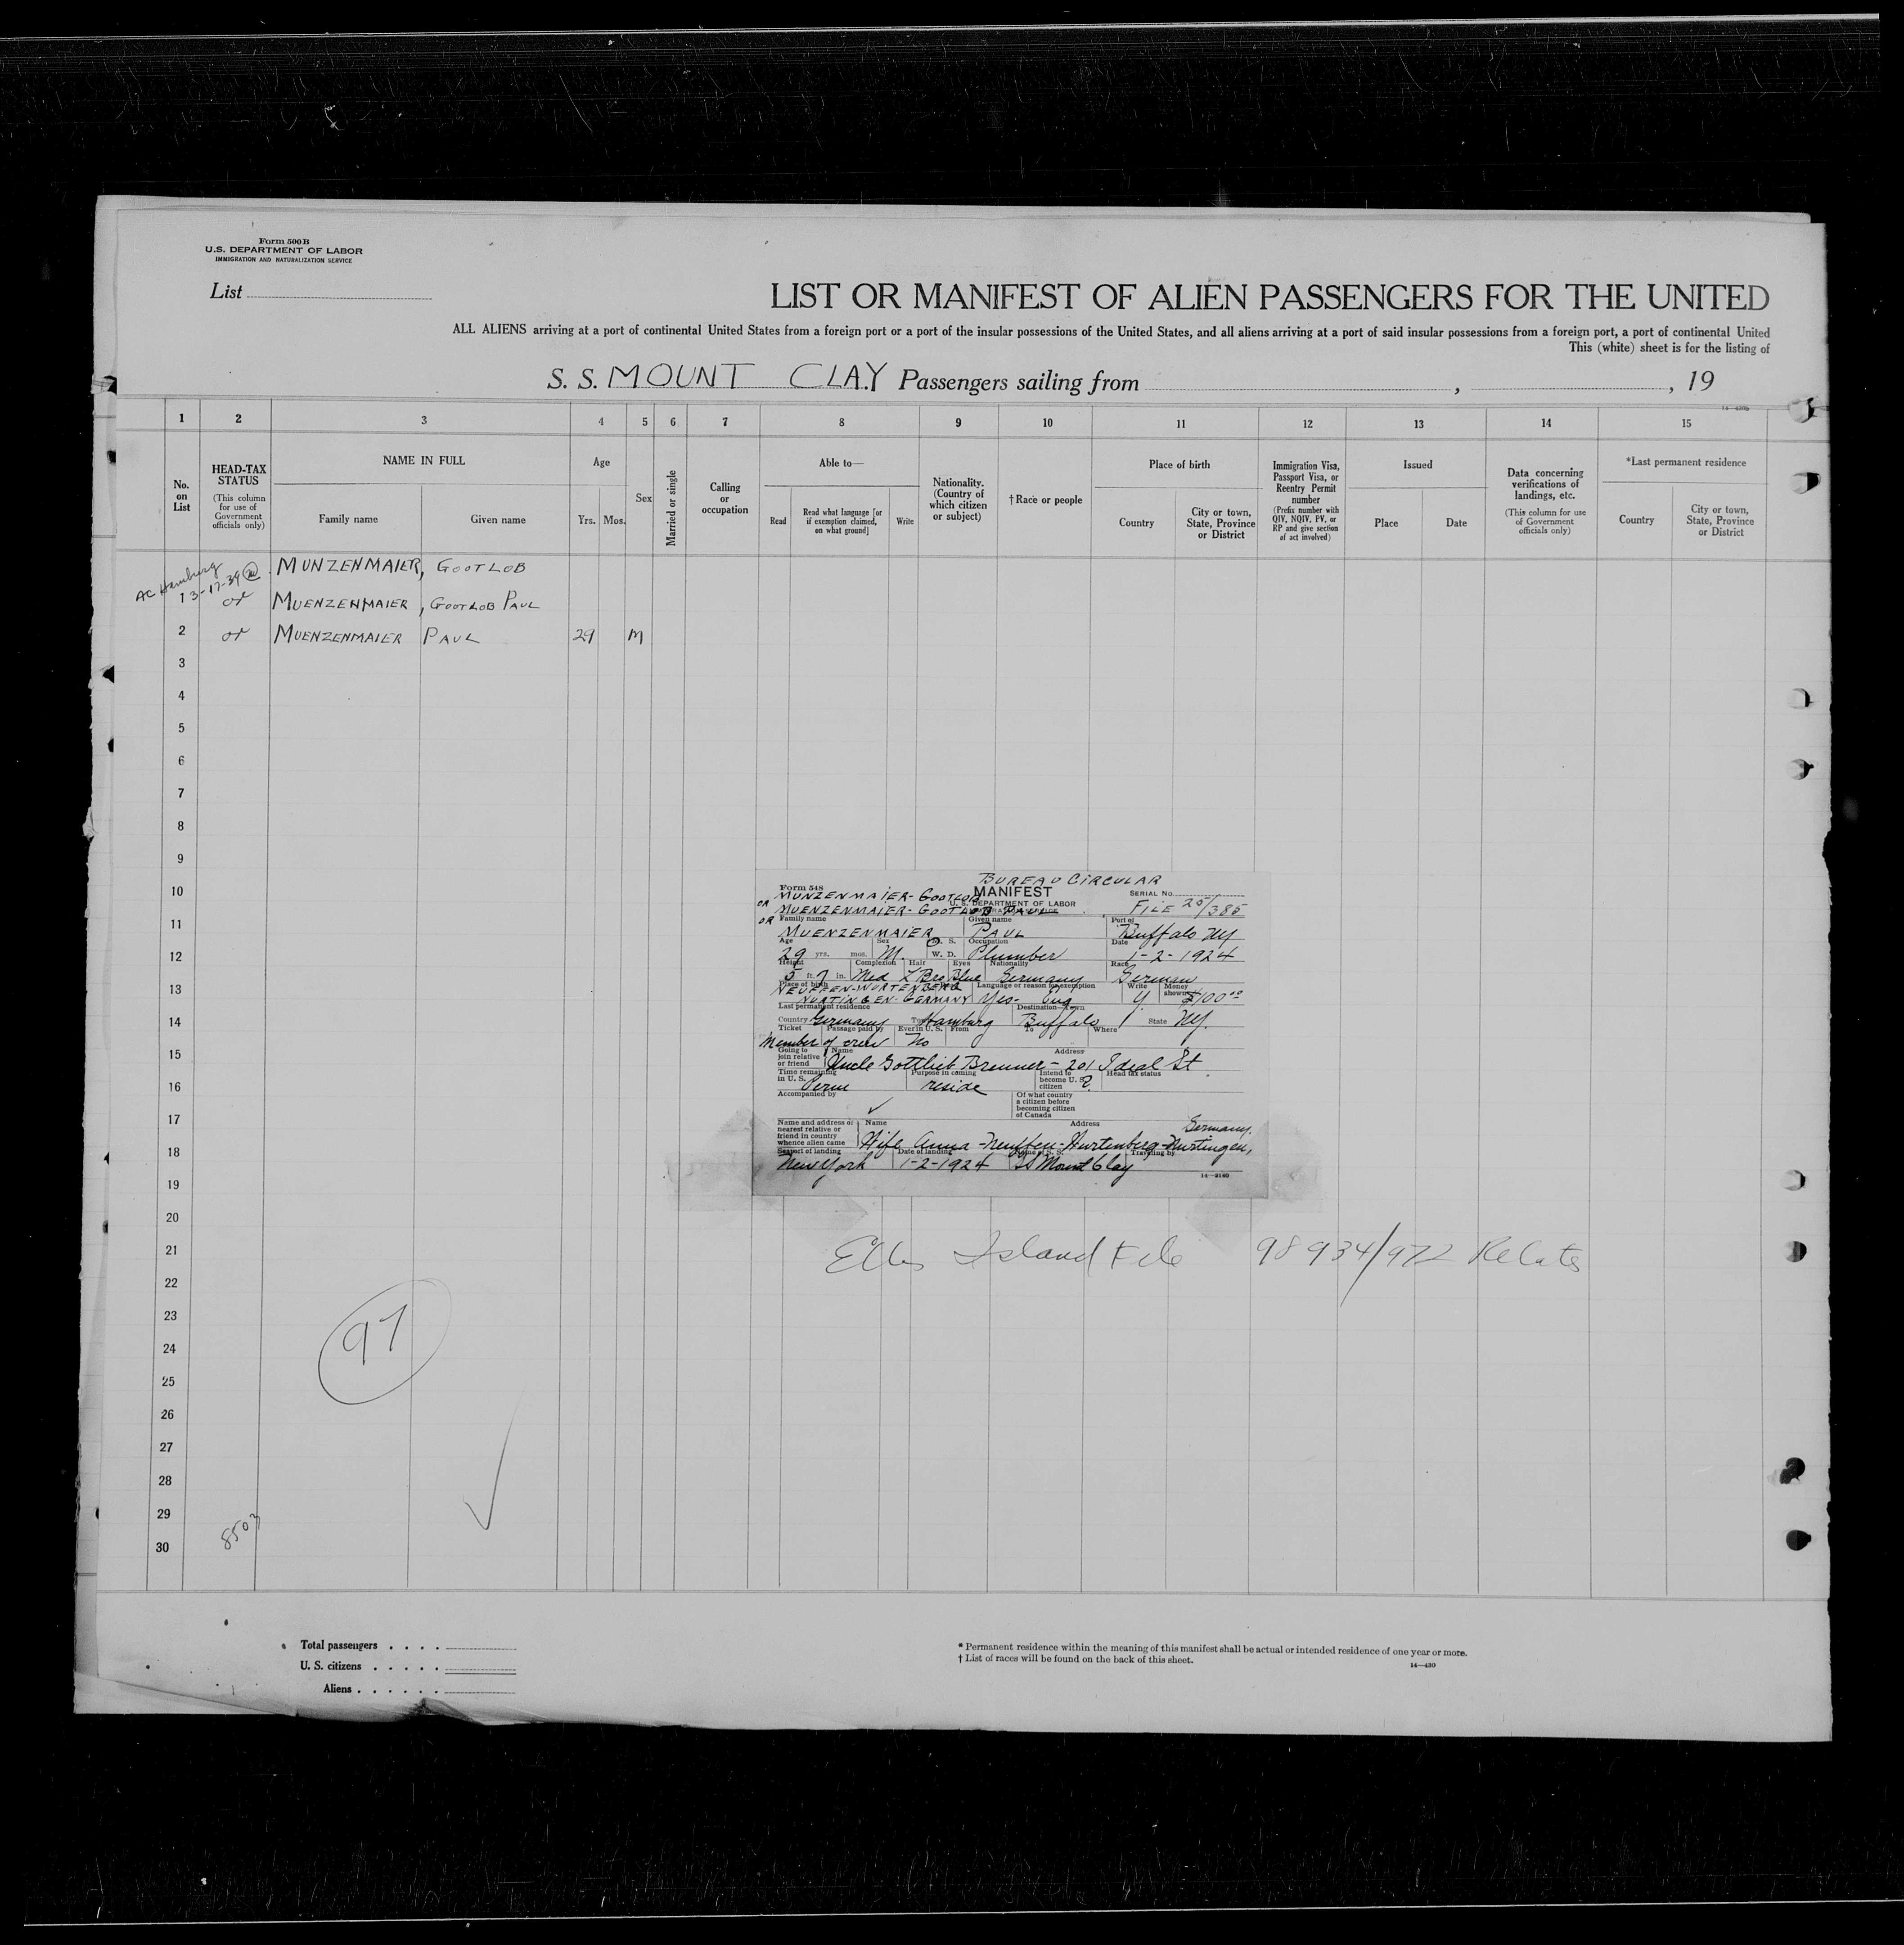 Form 500 B
U.S. DEPARTMENT OF LABOR
IMMIGRATION AND NATURALIZATION SERVICE
List
LIST OR MANIFEST OF ALIEN PASSENGERS FOR THE UNITED
ALL ALIENS arriving at a port of continental United States from a foreign port or a port of the insular possessions of the United States, and all aliens arriving at a port of said insular possessions from a foreign port, a port of continental United
This (white) sheet is for the listing of
S. S. MOUNT CLAY Passengers sailing from , , 19
1 2 3 4 5 6 7 8 9 10 11 12 13 14 15
No. on List
HEAD-TAX STATUS
(This column for use of Government officials only)
NAME IN FULL
Family name
Given name
Age
Yrs. Mos.
Sex
Married or single
Calling or occupation
Able to—
Read
Read what language [or if exemption claimed, on what ground]
Write
Nationality. (Country of which citizen or subject)
†Race or people
Place of birth
Country
City or town, State, Province or District
Immigration Visa, Passport Visa, or Reentry Permit number
(Prefix number with QIV, NQIV, PV, or RP and give section of act involved)
Issued
Place
Date
Data concerning verifications of landings, etc.
(This column for use of Government officials only)
*Last permanent residence
Country
City or town, State, Province or District
AC Hamburg
3-17-39
MUNZENMAIER, GOOTLOB
1 or MUENZENMAIER, GOOTLOB PAUL
2 or MUENZENMAIER PAUL 29 M
3
4
5
6
7
8
9
10
11
12
13
14
15
16
17
18
19
20
21
22
23
24
25
26
27
28
29
30
BUREAU CIRCULAR
Form 548
MANIFEST
SERIAL No.
OR MUNZENMAIER-GOOTLOB
U. S. DEPARTMENT OF LABOR
FILE 25/385
OR MUENZENMAIER-GOOTLOB PAUL
Family name Given name Port of
MUENZENMAIER PAUL Buffalo NY
Age Sex M. S. Occupation Date
29 yrs. mos. M. W. D. Plumber 1-2-1924
Height Complexion Hair Eyes Nationality Race
5 ft. 7 in. Med L Bro Blue Germany German
Place of birth Language or reason for exemption Write Money shown
NEUFFEN-WURTENBERG
NURTINGEN-GERMANY Yes- Eng Y $100.00
Last permanent residence Destination—Town
Country Germany Town Hamburg Buffalo State NY.
Ticket Passage paid by Ever in U. S. From To Where
Member of crew No
Going to join relative or friend Name Address
Uncle Gottlieb Brenner - 201 Ideal St
Time remaining in U. S. Purpose in coming Intend to become U. S. citizen Head tax status
Perm reside ?
Accompanied by Of what country a citizen before becoming citizen of Canada
Name and address of nearest relative or friend in country whence alien came Name Address
Germany.
Wife Anna - Neuffen-Wurtenberg-Nurtingen,
Seaport of landing Date of landing Name of S. S. Traveling by
New York 1-2-1924 SS Mount Clay
14—2160
Ellis Island File 98934/972 Relates
97
Total passengers
U. S. citizens
Aliens
* Permanent residence within the meaning of this manifest shall be actual or intended residence of one year or more.
† List of races will be found on the back of this sheet.
14—430